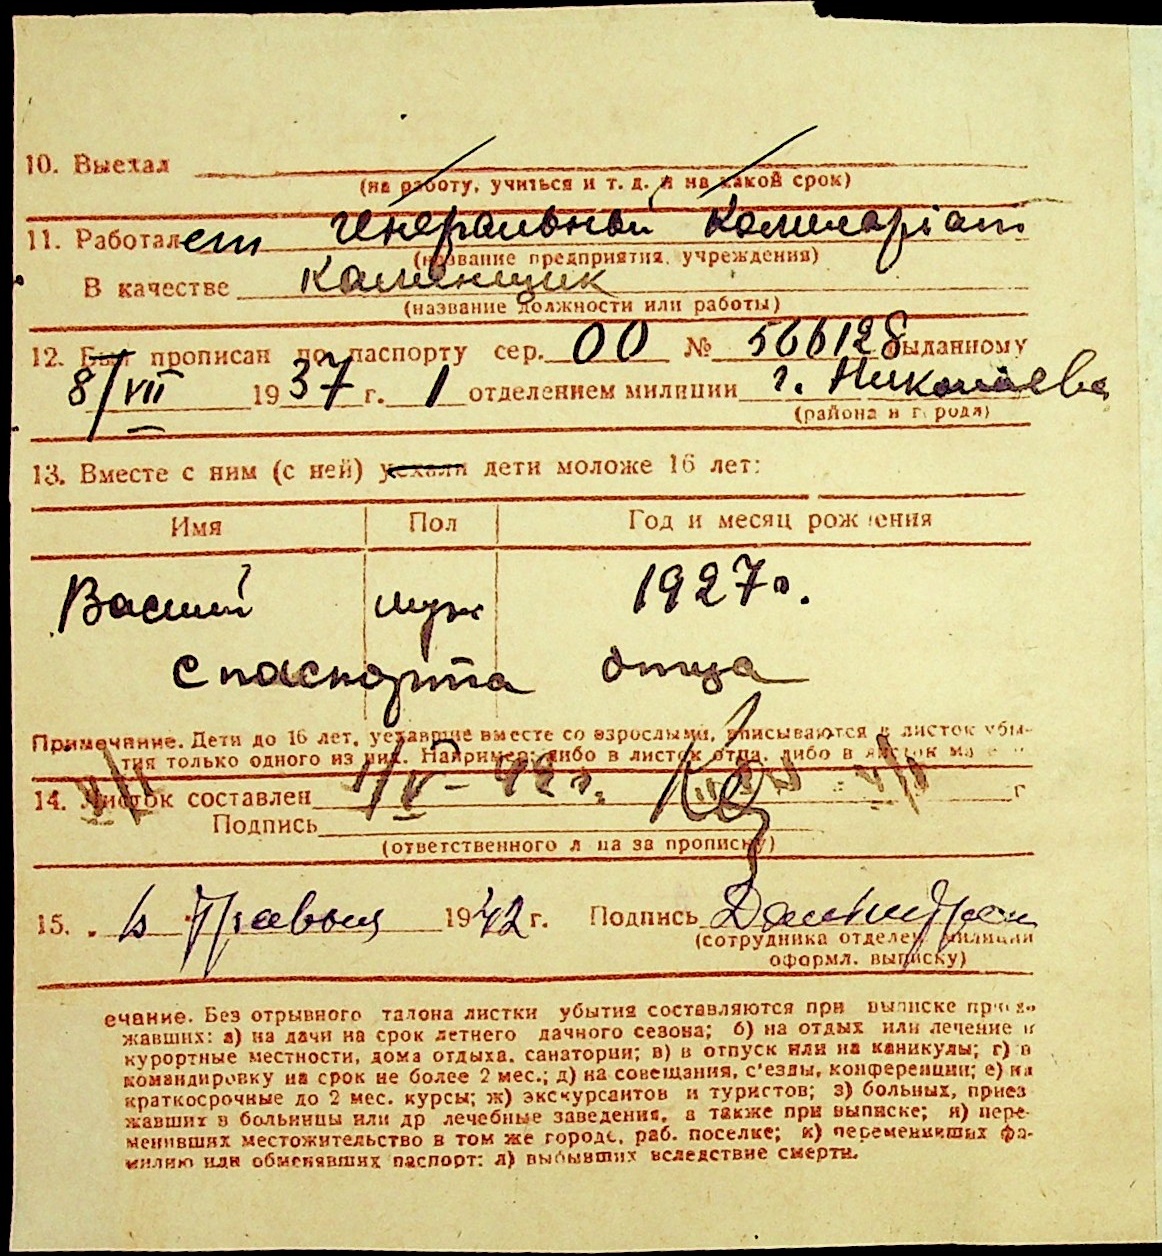 10. Выехал
(на работу, учиться и т. д. и на какой срок)
11. Работает генеральный Комиссаріат
(название предприятия, учреждения)
В качестве каменщик
(название должности или работы)
12. Был прописан по паспорту сер. 00 № 566128 выданному
8/VII 1937 г. 1 отделением милиции г. Николаева
(района и города)
13. Вместе с ним (с ней) уехали дети моложе 16 лет:
Имя Пол Год и месяц рождения
Васили муж 1927 г.
с паспорта отца
Примечание. Дети до 16 лет, уехавшие вместе со взрослыми, вписываются в листок убы-
тия только одного из них. Например: либо в листок отца, либо в листок ма
14. Листок составлен 1/V - 42 г. г
Подпись
(ответственного лица за прописку)
15. 1942 г. Подпись
(сотрудника отделен милиции
оформл. выписку)
ечание. Без отрывного талона листки убытия составляются при выписке приез-
жавших: а) на дачи на срок летнего дачного сезона; б) на отдых или лечение в
курортные местности, дома отдыха, санатории; в) в отпуск или на каникулы; г) в
командировку на срок не более 2 мес.; д) на совещания, с'езды, конференции; е) на
краткосрочные до 2 мес. курсы; ж) экскурсантов и туристов; з) больных, приез
жавших в больницы или др лечебные заведения, а также при выписке; и) пере-
менивших местожительство в том же городе, раб. поселке; к) переменивших фа-
милию или обменявших паспорт; л) выбывших вследствие смерти.